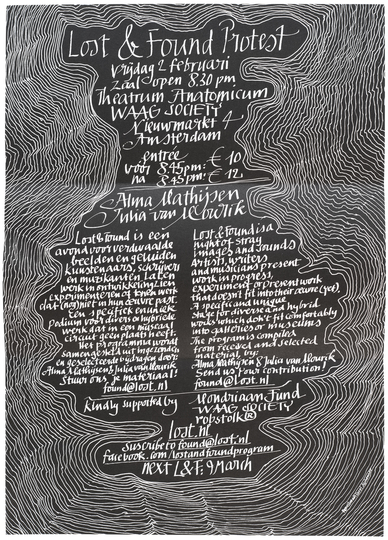 Lost & Found Protest
Vrijdag 2 februari
Zaal open 8.30 pm
Theatrum Anatomicum
WAAG SOCIETY
Nieuwmarkt 4
Amsterdam
entree
voor 8.45 pm: € 10
na 8.45 pm: € 12
Alma Mathijsen
Julia van Mourik
Lost & found is een
avond voor verdwaalde
beelden en geluiden
kunstenaars, schrijvers
en muzikanten laten
work in ontwikkeling zien
experimenteren of tonen werk
dat (nog) niet in hun oeuvre past.
Een specifiek en uniek
Podium voor divers en hybride
werk dat in een museaal
circuit geen plaats heeft.
Het programma wordt
samengesteld uit ingezonden
en geselecteerd bijdragen door
Alma Mathijsen & Julia van Mourik
Stuur ons je materiaal!
found@lost.nl
Lost & Found is a
night of stray
images and sounds
Artists, writers
and musicians present
work in progress,
experiment or present work
that doesn't fit into their oeuvre (yet).
A specific and unique
Stage for diverse and hybrid
works which don't fit comfortably
into galleries or museums
The program is compiled
from received and selected
material by:
Alma Mathijsen & Julia van Mourik
Send us your contribution!
found@lost.nl
kindly supported by
Mondriaan Fund
WAAG SOCIETY
robstolk®
lost.nl
Suscribe to found@lost.nl
facebook.com/lostandfoundprogram
next L&F: 9 March